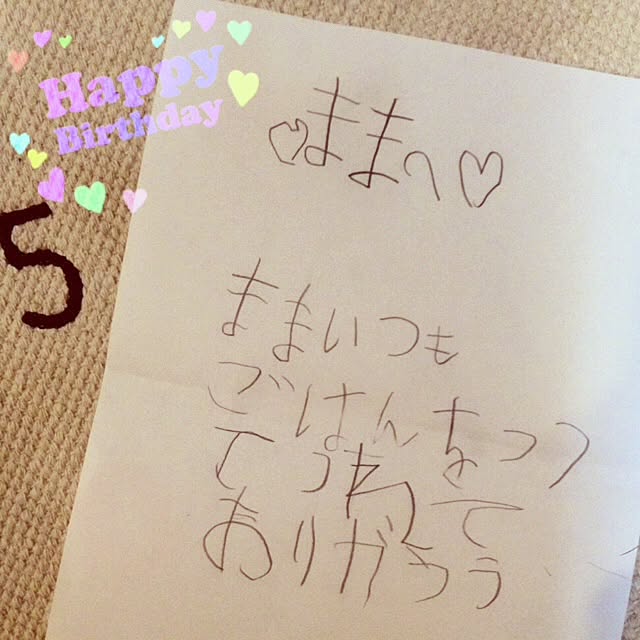 Happy
Birthday
♡ままへ♡
5
ままいつも
ごはんをつく
てくれて
ありがとう